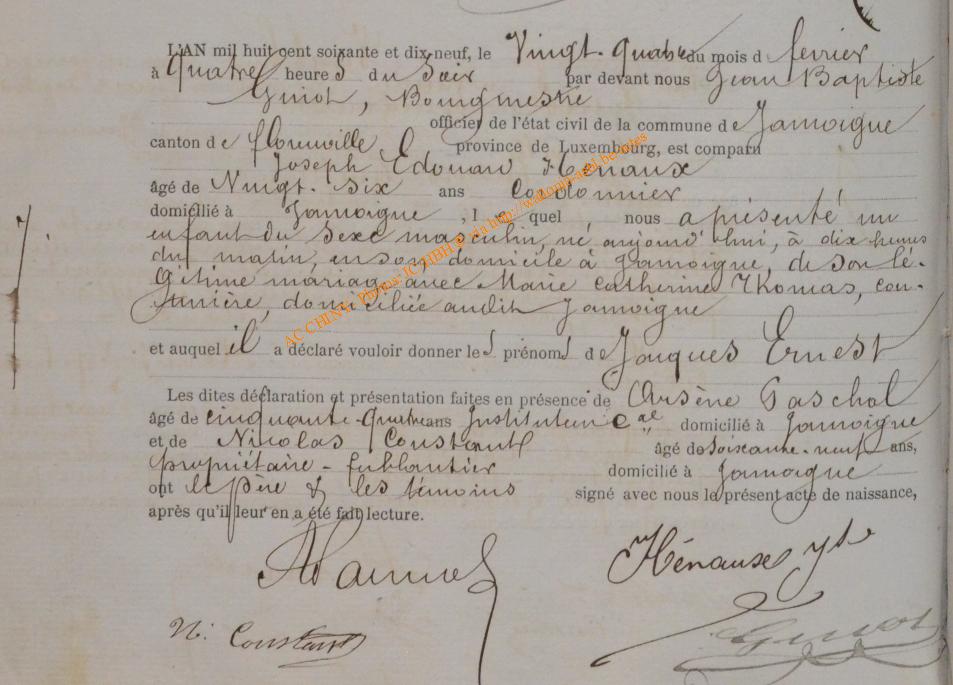 L'AN mil huit cent soixante et dix-neuf, le Vingt-quatre du mois d fevrier
à Quatre heure s du Soir par devant nous Jean Baptiste
Guiot, Bourgmestre
officier de l'état civil de la commune de Jamoigne
canton de florenville province de Luxembourg, est comparu
Joseph Edouard Hénaux
âgé de Vingt-six ans Cordonnier
domicilié à Jamoigne , l e quel nous a présenté un
enfant du sexe masculin, né aujourd'hui, à dix heures
du matin, en son domicile à Jamoigne, de son lé-
gitime mariage avec Marie Catherine Thomas, cou-
turière, domiciliée audit Jamoigne
et auquel il a déclaré vouloir donner les prénoms de Jacques Ernest
Les dites déclaration et présentation faites en présence de Arsène Paschal
âgé de cinquante-quatre ans Instituteur cal domicilié à Jamoigne
et de Nicolas Constant âgé de soixante-neuf ans,
propriétaire - domicilié à Jamoigne
ont le père & les témoins signé avec nous le présent acte de naissance,
après qu'il leur en a été fait lecture.
Hénaux
N. Constant
Guiot
AC CHINY. Photos: IC LIBH © via http://wallonia-asbl.be/actes